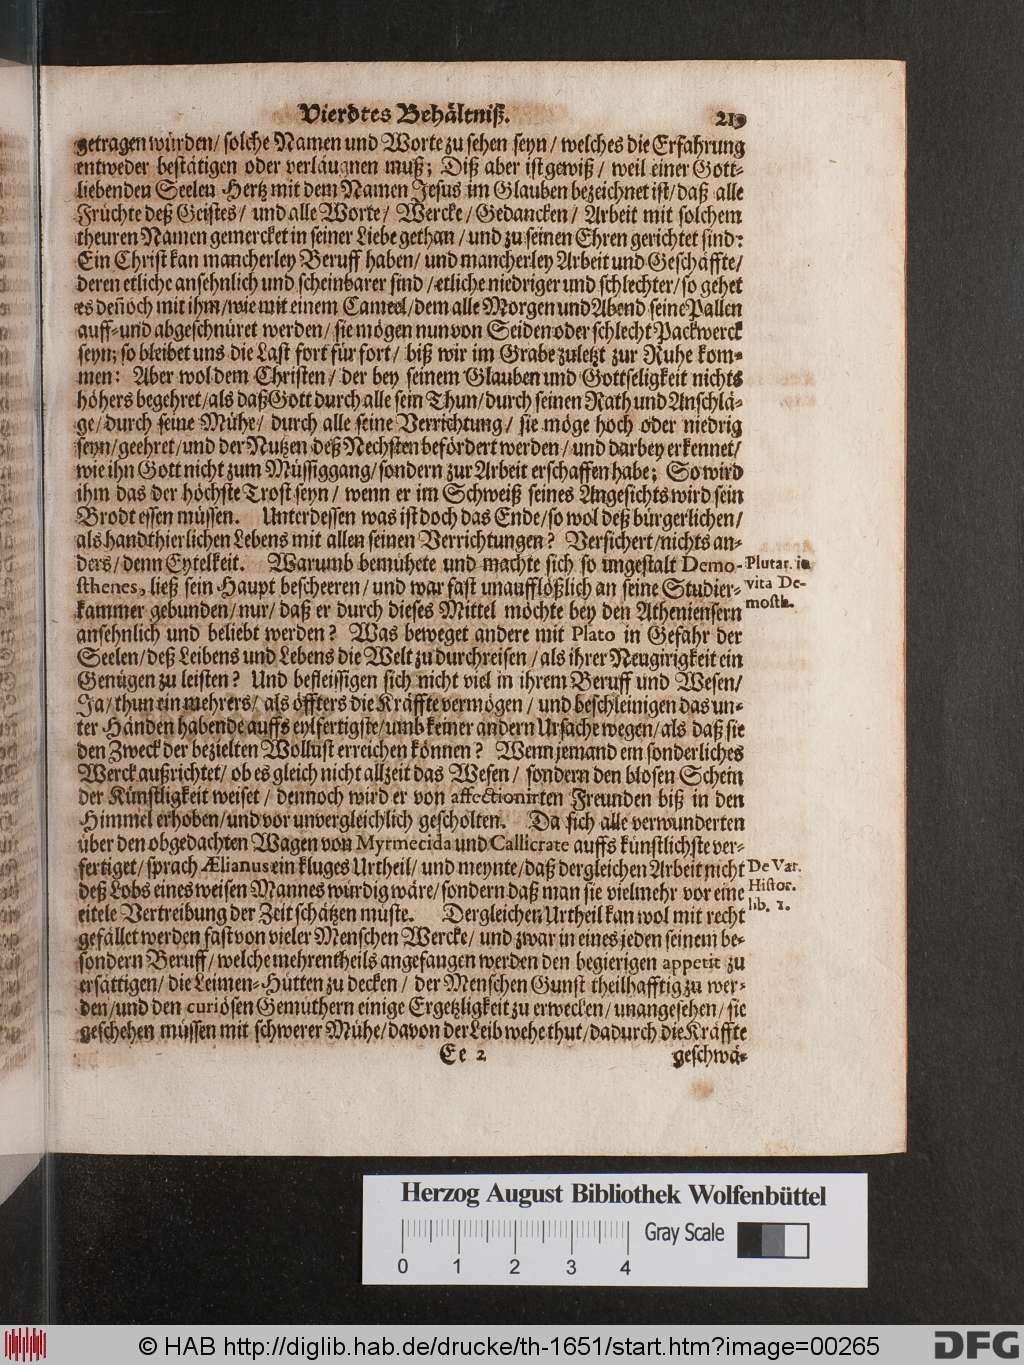 Vierdtes Behältniß. 219
getragen würden/ solche Namen und Worte zu sehen seyn/ welches die Erfahrung
entweder bestätigen oder verläugnen muß; Diß aber ist gewiß/ weil einer Gott-
liebenden Seelen Hertz mit dem Namen Jesus im Glauben bezeichnet ist/ daß alle
Früchte deß Geistes/ und alle Worte/ Wercke/ Gedancken/ Arbeit mit solchem
theuren Namen gemercket in seiner Liebe gethan/ und zu seinen Ehren gerichtet sind:
Ein Christ kan mancherley Beruff haben/ und mancherley Arbeit und Geschäffte/
deren etliche ansehnlich und scheinbarer sind/ etliche niedriger und schlechter/ so gehet
es deñoch mit ihm/ wie mit einem Cameel/ dem alle Morgen und Abend seine Pallen
auff- und abgeschnüret werden/ sie mögen nun von Seiden oder schlecht Packwerck
seyn; so bleibet uns die Last fort für fort/ biß wir im Grabe zuletzt zur Ruhe kom-
men: Aber wol dem Christen/ der bey seinem Glauben und Gottseligkeit nichts
höhers begehret/ als daß Gott durch alle sein Thun/ durch seinen Rath und Anschlä-
ge/ durch seine Mühe/ durch alle seine Verrichtung/ sie möge hoch oder niedrig
seyn/ geehret/ und der Nutzen deß Nechsten befördert werden/ und darbey erkennet/
wie ihn Gott nicht zum Müssiggang/ sondern zur Arbeit erschaffen habe; So wird
ihm das der höchste Trost seyn/ wenn er im Schweiß seines Angesichts wird sein
Brodt essen müssen. Unterdessen was ist doch das Ende/ so wol deß bürgerlichen/
als handthierlichen Lebens mit allen seinen Verrichtungen? Versichert/ nichts an-
ders/ denn Eytelkeit. Warumb bemühete und machte sich so ungestalt Demo-
sthenes, ließ sein Haupt bescheeren/ und war fast unaufflößlich an seine Studier-
kammer gebunden/ nur/ daß er durch dieses Mittel möchte bey den Atheniensern
ansehnlich und beliebt werden? Was beweget andere mit Plato in Gefahr der
Seelen/ deß Leibens und Lebens die Welt zu durchreisen/ als ihrer Neugirigkeit ein
Genügen zu leisten? Und befleissigen sich nicht viel in ihrem Beruff und Wesen/
Ja/ thun ein mehrers/ als öffters die Kräffte vermögen/ und beschleinigen das un-
ter Händen habende auffs eylfertigste/ umb keiner andern Ursache wegen/ als daß sie
den Zweck der bezielten Wollust erreichen können? Wenn jemand ein sonderliches
Werck außrichtet/ ob es gleich nicht allzeit das Wesen/ sondern den blosen Schein
der Künstligkeit weiset/ dennoch wird er von affectionirten Freunden biß in den
Himmel erhoben/ und vor unvergleichlich gescholten. Da sich alle verwunderten
über den obgedachten Wagen von Myrmecida und Callicrate auffs künstlichste ver-
fertiget/ sprach Ælianus ein kluges Urtheil/ und meynte/ daß dergleichen Arbeit nicht
deß Lobs eines weisen Mannes würdig wäre/ sondern daß man sie vielmehr vor eine
eitele Vertreibung der Zeit schätzen müste. Dergleichen Urtheil kan wol mit recht
gefället werden fast von vieler Menschen Wercke/ und zwar in eines jeden seinem be-
sondern Beruff/ welche mehrentheils angefangen werden den begierigen appetit zu
ersättigen/ die Leimen-Hütten zu decken/ der Menschen Gunst theilhafftig zu wer-
den/ und den curiösen Gemüthern einige Ergetzligkeit zu erwecken/ unangesehen/ sie
geschehen müssen mit schwerer Mühe/ davon der Leib wehe thut/ dadurch die Kräffte
Ee 2 geschwä-
Plutar. in
vita De-
mosth.
De Var.
Histor.
lib. 1.
Herzog August Bibliothek Wolfenbüttel
Gray Scale
0 1 2 3 4
© HAB http://diglib.hab.de/drucke/th-1651/start.htm?image=00265
DFG